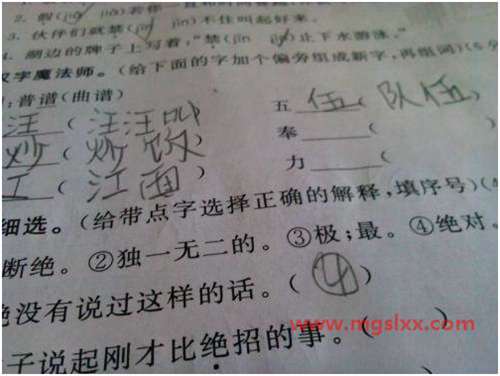 2. 假(jiǎ jià)若你一直
3. 伙伴们就禁(jīn jìn)不住叫起好来。
4. 湖边的牌子上写着，“禁(jīn jìn)止下水游泳。”
汉字魔法师。(给下面的字加个偏旁组成新字，再组词)(6分
:普 谱(曲谱) 五 伍(队伍)
汪(汪汪叫) 奉 (
炒(炒饭) 力 (
工(江面)
细选。(给带点字选择正确的解释，填序号)(4
断绝。②独一无二的。③极；最。④绝对。
绝没有说过这样的话。(④)
子说起刚才比绝招的事。( )
www.mgslxx.com